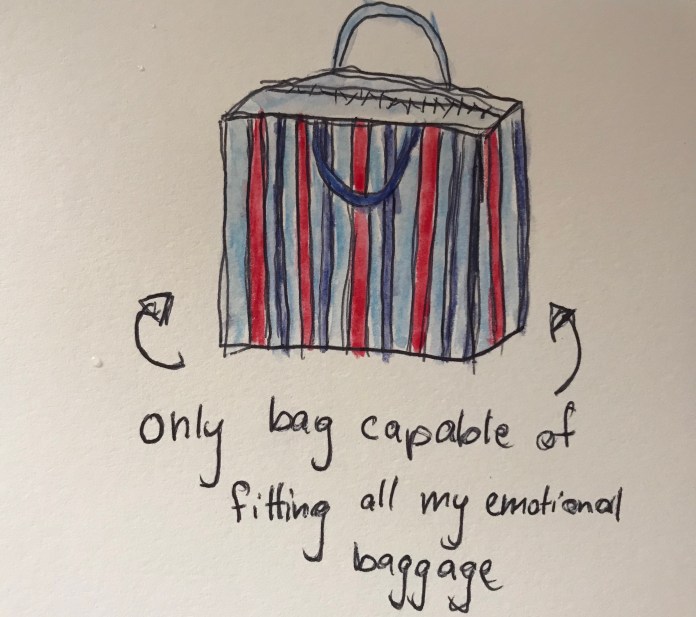 only bag capable of
fitting all my emotional
baggage